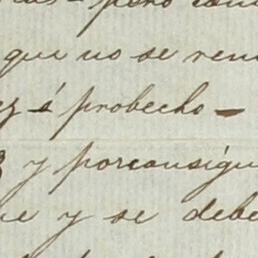 pero
que no se ren
á probecho -
y porconsigu
y se debe